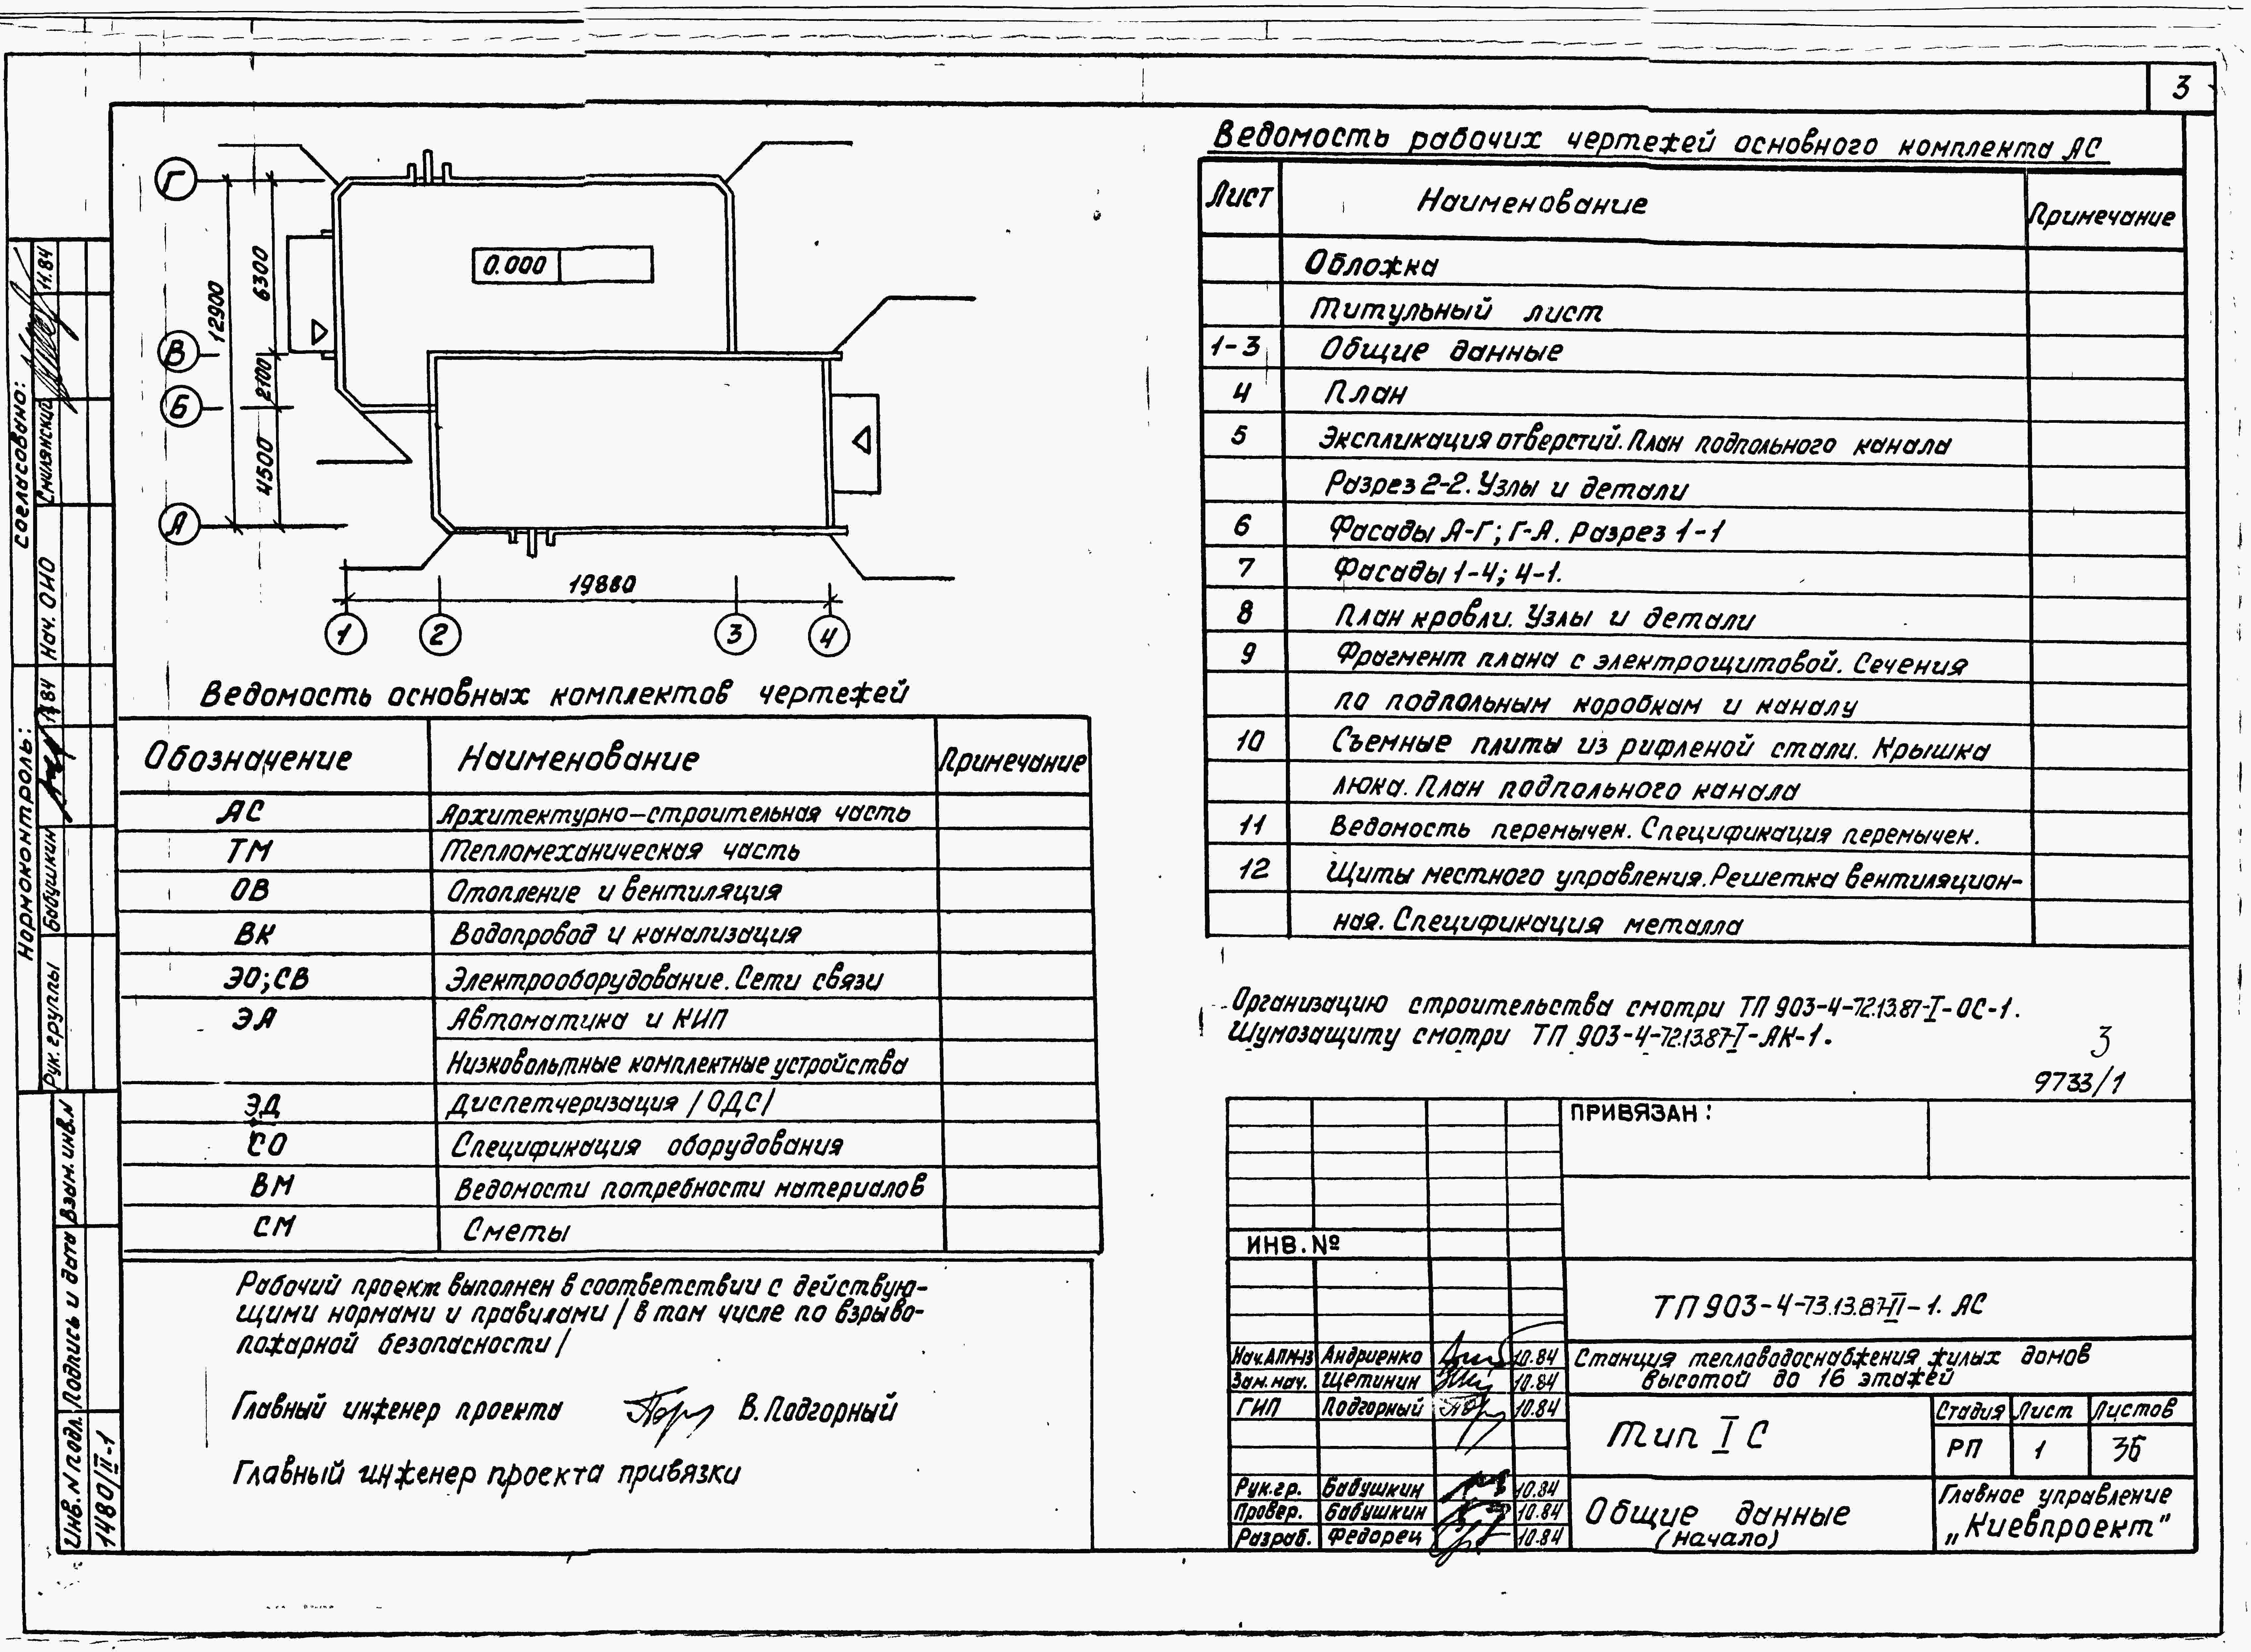 3
Г
В
Б
А
12900
6300
2100
4500
0.000
19880
1
2
3
4
Ведомость основных комплектов чертежей
Обозначение Наименование Примечание
АС Архитектурно-строительная часть
ТМ Тепломеханическая часть
ОВ Отопление и вентиляция
ВК Водопровод и канализация
ЭО; СВ Электрооборудование. Сети связи
ЭА Автоматика и КИП
Низковольтные комплектные устройства
ЭД Диспетчеризация /ОДС/
СО Спецификация оборудования
ВМ Ведомости потребности материалов
СМ Сметы
Рабочий проект выполнен в соответствии с действую-
щими нормами и правилами / в том числе по взрыво-
пожарной безопасности /
Главный инженер проекта В. Подгорный
Главный инженер проекта привязки
Ведомость рабочих чертежей основного комплекта АС
Лист Наименование Примечание
Обложка
Титульный лист
1-3 Общие данные
4 План
5 Экспликация отверстий. План подпольного канала
Разрез 2-2. Узлы и детали
6 Фасады А-Г; Г-А. Разрез 1-1
7 Фасады 1-4; 4-1.
8 План кровли. Узлы и детали
9 Фрагмент плана с электрощитовой. Сечения
по подпольным коробкам и каналу
10 Съемные плиты из рифленой стали. Крышка
люка. План подпольного канала
11 Ведомость перемычек. Спецификация перемычек.
12 Щиты местного управления. Решетка вентиляцион-
ная. Спецификация металла
Организацию строительства смотри ТП 903-4-72.13.87-I-ОС-1.
Шумозащиту смотри ТП 903-4-72.13.87-I-АК-1.
3
9733/1
ПРИВЯЗАН:
ИНВ. №
ТП 903-4-73.13.87-II-1. АС
Нач. АПМ-13 Андриенко 10.84
Зам. нач. Щетинин 10.84
ГИП Подгорный 10.84
Рук. гр. Бабушкин 10.84
Провер. Бабушкин 10.84
Разраб. Федорец 10.84
Станция тепловодоснабжения жилых домов
высотой до 16 этажей
Тип I С
Стадия Лист Листов
РП 1 36
Общие данные
(начало)
Главное управление
„Киевпроект"
Согласовано:
Нач. ОИО Смилянский 11.84
Нормоконтроль:
Рук. группы Бабушкин 11.84
Взам. инв. N
Подпись и дата
Инв. N подл.
1480/II-1